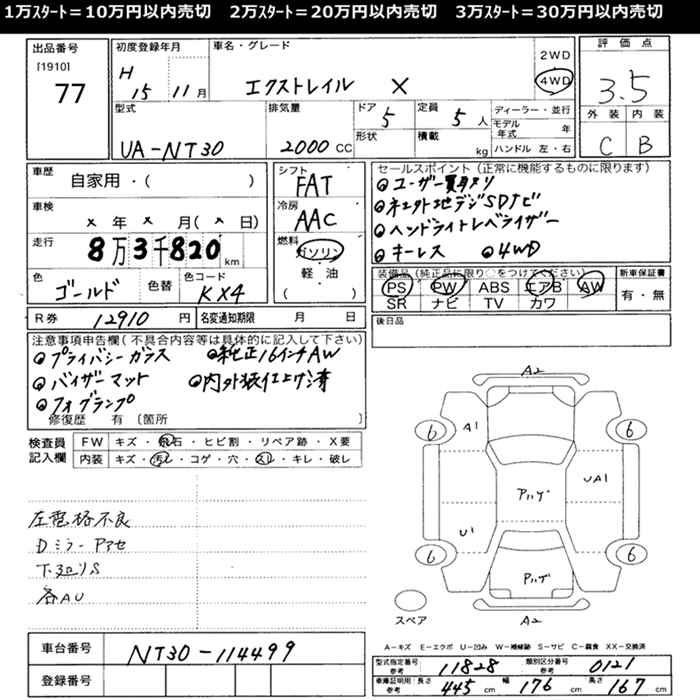 1万ｽﾀｰﾄ＝10万円以内売切　2万ｽﾀｰﾄ＝20万円以内売切　3万ｽﾀｰﾄ＝30万円以内売切
出品番号
[1910]
77
初度登録年月
H 15 11月
車名・グレード
エクストレイル X
2WD
4WD
評価点
3.5
外装 内装
C B
型式
UA-NT30
排気量
2000 CC
ドア
5
形状
定員
5 人
積載
kg
ディーラー・並行
モデル年式 年
ハンドル 左・右
車歴
自家用・( )
車検
× 年 × 月(× 日)
走行
8万3千820km
色
ゴールド
色替
色コード
KX4
シフト
FAT
冷房
AAC
燃料
ガソリン
軽油
セールスポイント（正常に機能するものに限ります）
ユーザー買取り
社外地デジSDナビ
ハンドライトレベライザー
キーレス 4WD
装備品（純正品に限り○をつけてください）
PS PW ABS エアB AW
SR ナビ TV カワ
新車保証書
有・無
R券 12910 円
名変通知期限 月 日
後日品
注意事項申告欄(不具合内容等は具体的に記入して下さい)
プライバシーガラス 純正16インチAW
バイザーマット 内外装仕上げ済
フォグランプ
修復歴 有〔箇所 〕
検査員記入欄
FW キズ・飛石・ヒビ割・リペア跡・X要
内装 キズ・汚レ・コゲ・穴・スレ・キレ・破レ
Dミラー アセ
各AU
A2
6 A1 6
アハゲ UA1
U1
6 6
アハゲ
スペア
A2
A－キズ E－エクボ U－凹み W－補修跡 S－サビ C－腐食 XX－交換済
車台番号
NT30-114499
登録番号
型式指定番号 参考 11828 類別区分番号 参考 0121
車庫証明用 参考 長さ 445 cm 幅 176 cm 高さ 167 cm